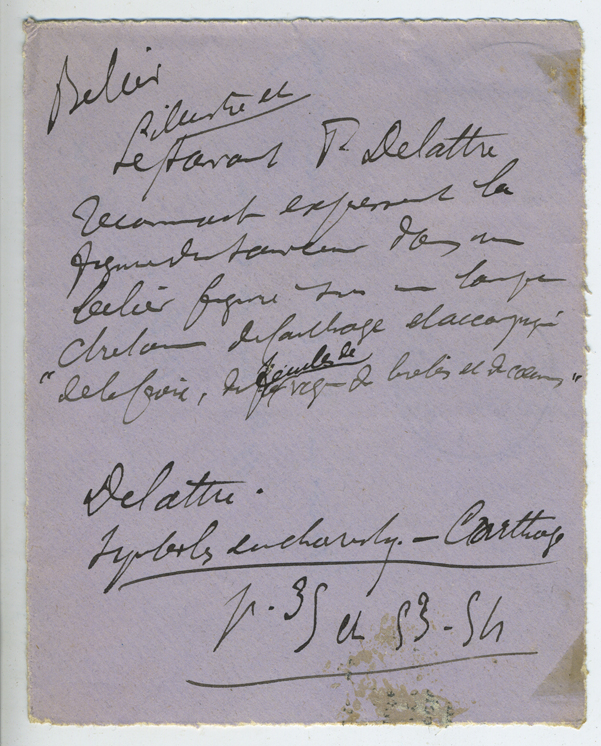 Belier
l'illustre et
le savant P. Delattre
reconnait expressement la
figure du Sauveur dans un
belier figuré sur une lampe
chretienne de Carthage et accompagné
"de la croix, de feuilles de vigne de brebis et de cœurs"
Delattre.
Symboles eucharistiq. – Carthage
p. 35 et 53-54